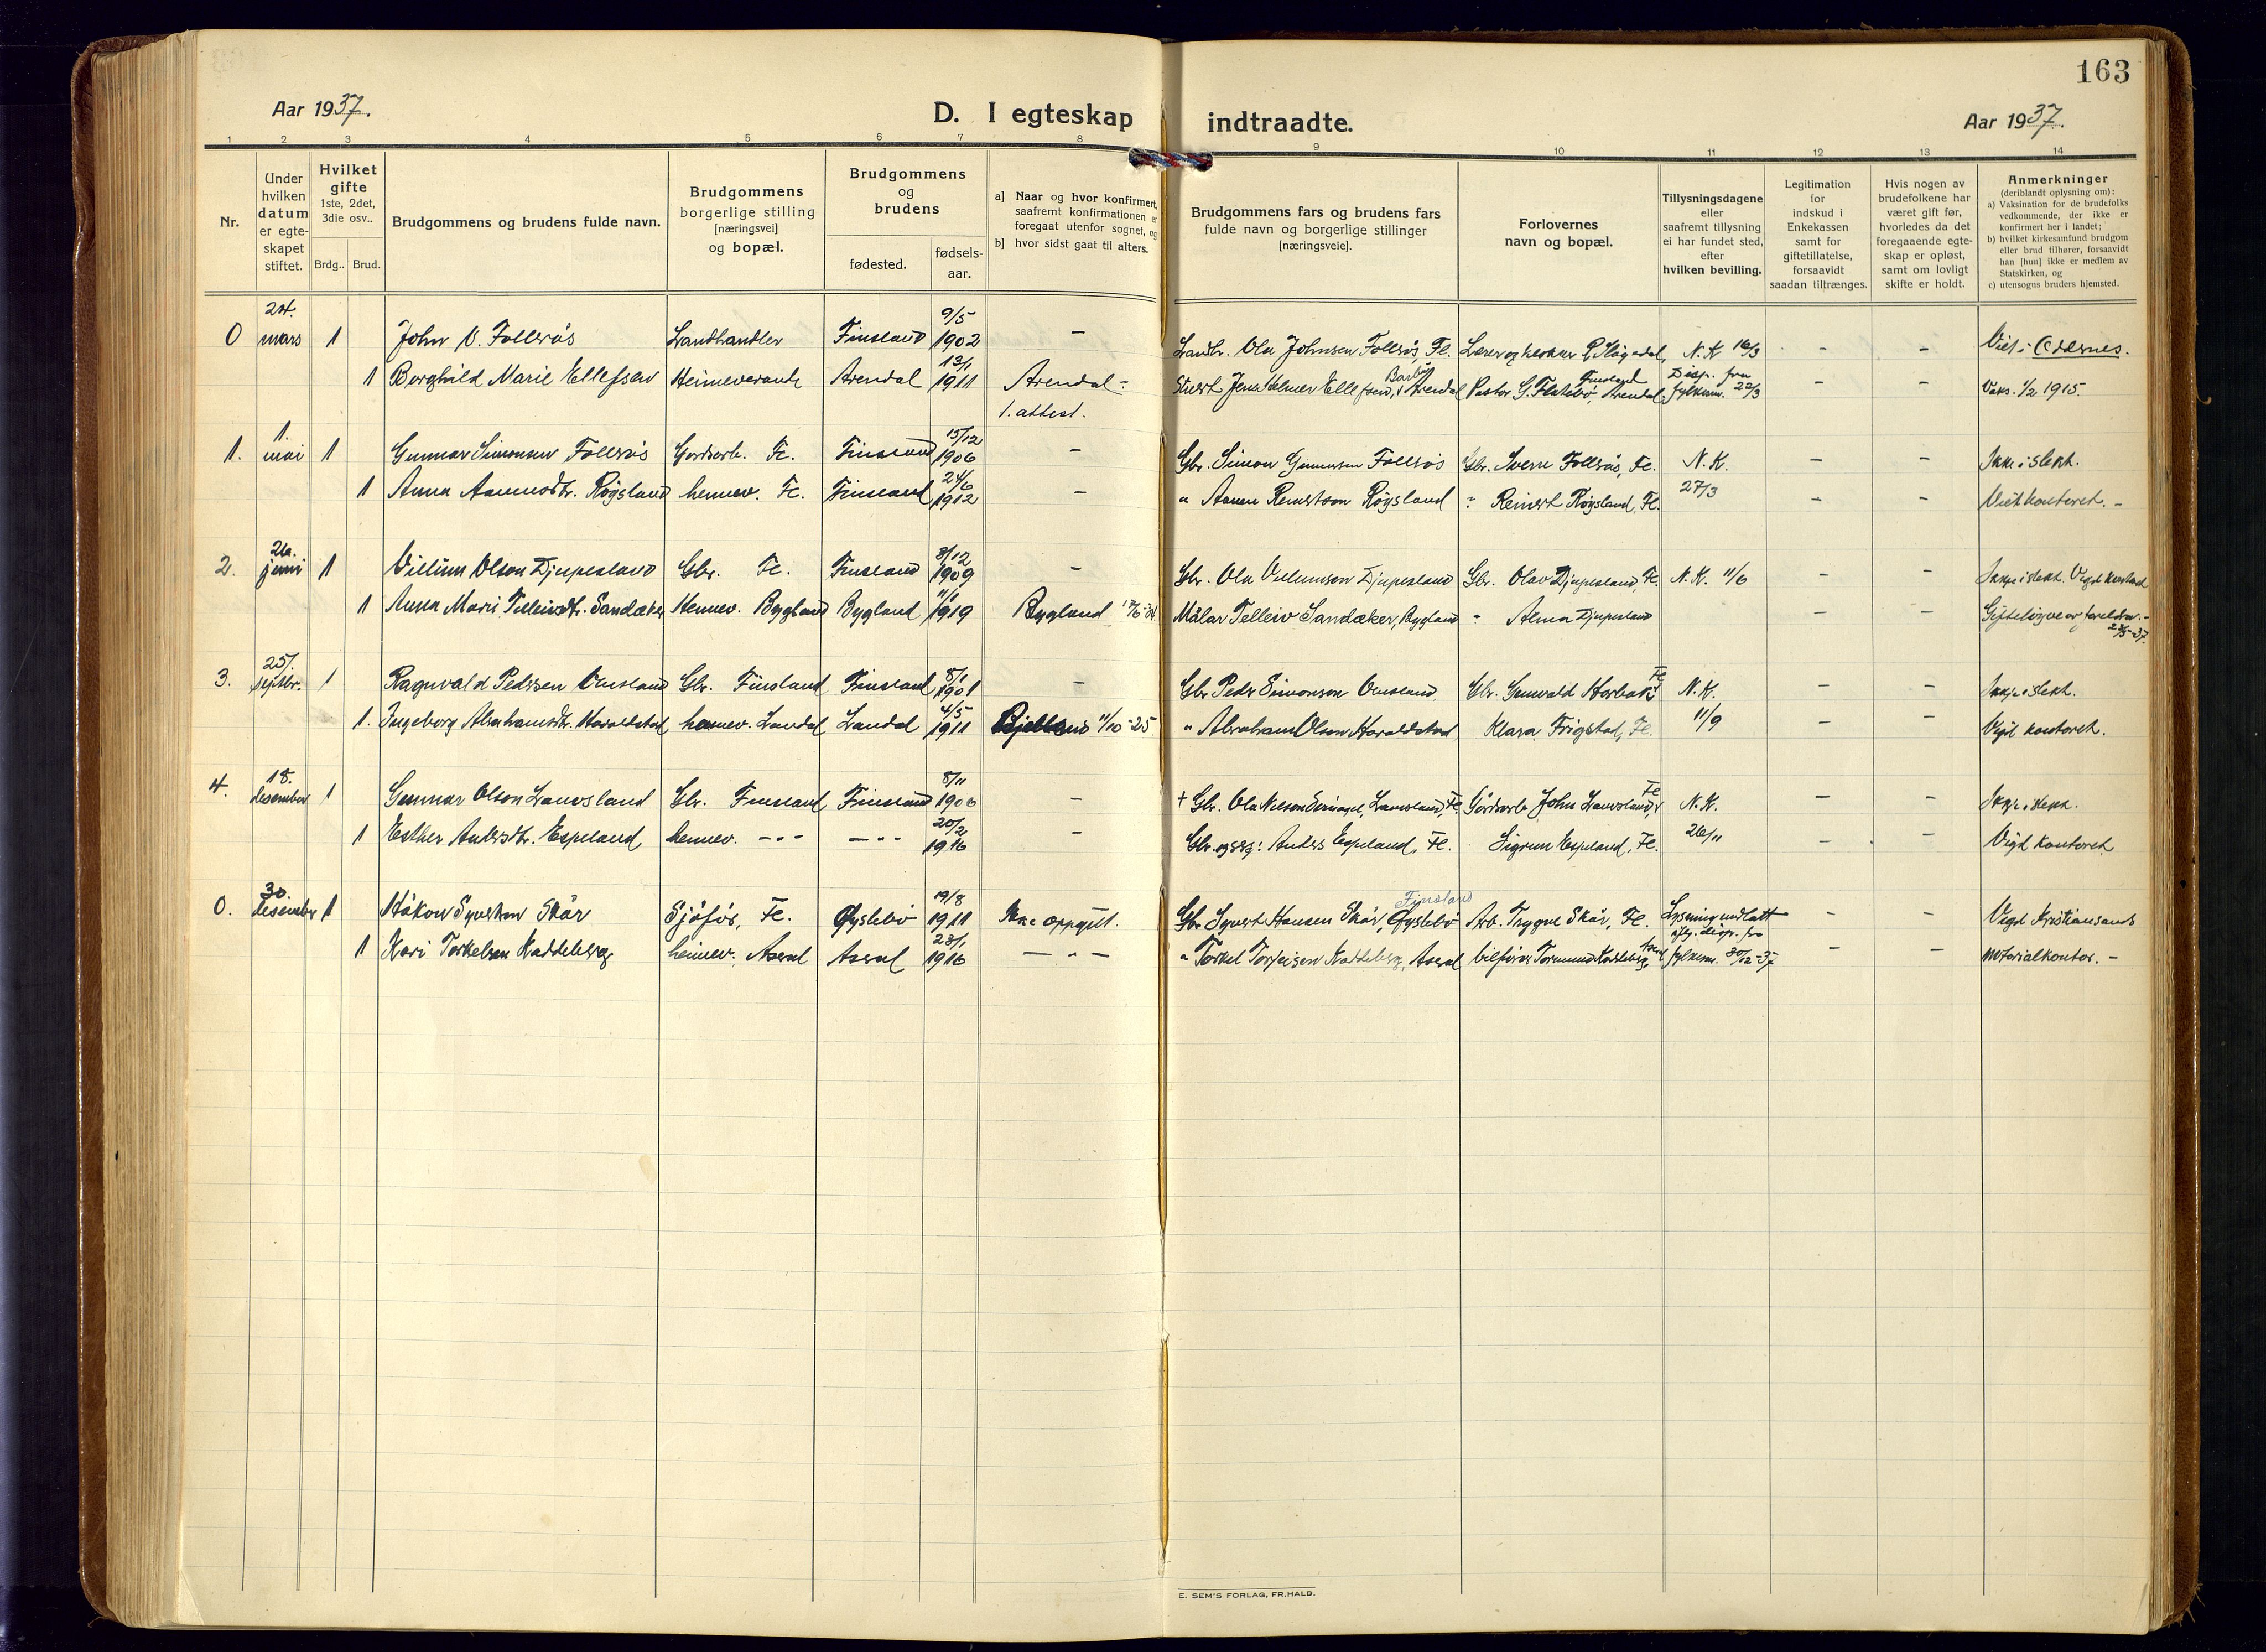 163
Aar 1937.
D. I egteskap indtraadte.
Aar 1937.
1 2 3 4 5 6 7 8 9 10 11 12 13 14
Nr.
Under hvilken datum er egte- skapet stiftet.
Hvilket gifte 1ste, 2det, 3die osv..
Brdg.. Brud.
Brudgommens og brudens fulde navn.
Brudgommens borgerlige stilling [næringsvei] og bopæl.
Brudgommens og brudens
fødested.
fødsels- aar.
a] Naar og hvor konfirmert, saafremt konfirmationen er foregaat utenfor sognet, og
b] hvor sidst gaat til alters.
Brudgommens fars og brudens fars fulde navn og borgerlige stillinger [næringsveie].
Forlovernes navn og bopæl.
Tillysningsdagene eller saafremt tillysning ei har fundet sted, efter hvilken bevilling.
Legitimation for indskud i Enkekassen samt for giftetillatelse, forsaavidt saadan tiltrænges.
Hvis nogen av brudefolkene har været gift før, hvorledes da det foregaaende egte- skap er opløst, samt om lovligt skifte er holdt.
Anmerkninger (deriblandt oplysning om):
a) Vaksination for de brudefolks vedkommende, der ikke er konfirmert her i landet;
b) hvilket kirkesamfund brudgom eller brud tilhører, forsaavidt han [hun] ikke er medlem av Statskirken, og
c) utensogns bruders hjemsted.
0 24. mars 1 John O. Follerås Landhandler Finsland 9/5 1902 – Landh. Ola Johnsen Follerås, Fe. Lærer og klokker Hågedal, Finsland N.K. 16/3 – – Viet i Oddernes.
1 Borghild Marie Ellefsen Heimeverande Arendal 13/1 1911 Arendal - 1. attest. Stuert Jens Helmer Ellefsen, Barbu, Arendal Pastor G. Flatebø, Arendal Disp. fra fylkesm. 22/3 – – Vaks. 1/2 1915.
1. 1. mai 1 Gunnar Simonsen Follerås Gardsarb. Fe. Finsland 15/12 1906 – Gbr. Simon Gunnarsen Follerås Gbr. Sverre Follerås, Fe. N.K. – – Ikke i slekt.
1 Anna Aanensdtr. Røysland heimev. Fe. Finsland 24/6 1912 – " Aanen Reinertson Røysland " Reinert Røysland, Fe. 27/3 – – Viet kontoret. –
2. 26. juni 1 Villum Olson Djupesland Gbr. Fe. Finsland 8/12 1909 – Gbr. Ola Villumson Djupesland Gbr. Olav Djupesland, Fe. N.K. 11/6 – – Ikkje i slekt. Vigd kontoret
1 Anna Marie Telleivdtr. Sandåker Heimev. Bygland Bygland 11/1 1919 Bygland Målar Telleiv Sandåker, Bygland " Alma Djupesland – – Gifteløyve av foreldra. – 2/5-37.
3. 25/. septbr. 1 Ragnvald Pedersen Ousland Gbr. Finsland Finsland 8/1 1901 – Gbr. Peder Simonson Ousland Gbr. Gunvald Horbakk Fe N.K. – – Ikkje i slekt.
1. Ingeborg Abrahamsdtr. Haraldstad heimev. Laudal Laudal 4/5 1911 Bjelland 11/10-25 " Abraham Olson Haraldstad Klara Frigstad, Fe. 11/9 – – Vigd kontoret.
4. 18. desember 1 Gunnar Olson Lauvsland Gbr. Finsland Finsland 8/11 1906 – + Gbr. Ola Nilson Lauvsland, Fe. Gårdsarb. John Lauvsland, Fe N.K. – – Ikkje i slekt.
1 Esther Andersdtr. Espeland heimev. –"– –"– 20/2 1916 – Gbr. og Anders Espeland, Fe. Sigrun Espeland, Fe. 26/11 – – Vigd kontoret
0. 30. desember 1 Håkon Syvertson Skår Sjåfør, Fe. Øyslebø 19/8 1911 Ikke oppgitt. Gbr. Syvert Hansen Skår, Øyslebø Finsland Arb. Trygve Skår, Fe. Lysning undlatt – – Vigd Kristiansands
1 Kari Torkelsen Kaddeberg heimev. Åseral Åseral 23/1 1916 – " – " Torkel Torjeisen Kaddeberg, Åseral bilfører Tormund Kaddeberg, Åseral ifg. disp. fra fylkesm. 30/12-37 – – notarialkontor. –
E. SEM'S FORLAG, FR.HALD.